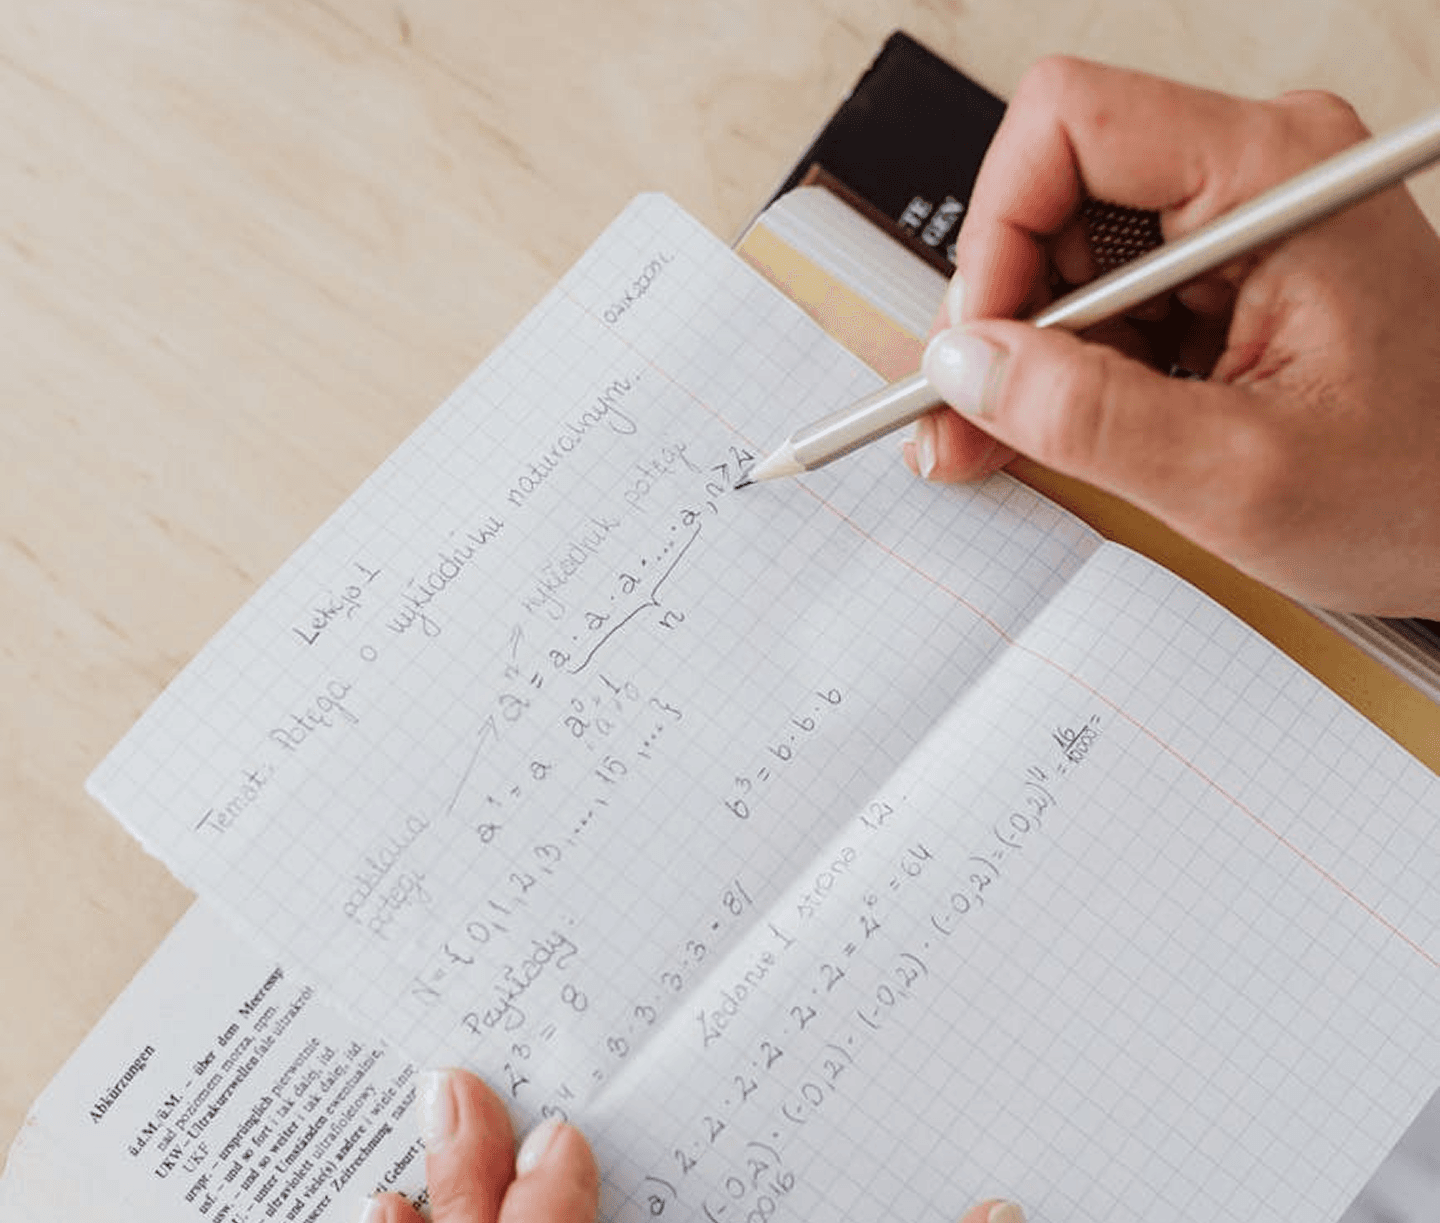 Lekcja 1
Temat: Potęga o wykładniku naturalnym.
wykładnik potęgi
aⁿ = a · a · a · .... · a , n ≥ 2
n
podstawa
potęgi
a¹ = a a⁰ = 1
a ≠ 0
N = { 0, 1, 2, 3 ...., 15 ,... }
Przykłady:
2³ = 8 b³ = b · b · b
3⁴ = 3 · 3 · 3 · 3 = 81
Zadanie 1 strona 12.
a) 2 · 2 · 2 · 2 · 2 · 2 = 2⁶ = 64
(-0,2) · (-0,2) · (-0,2) · (-0,2) = (-0,2)⁴ = 16/10000 =
0016
TE
GEN
Abkürzungen
ü.d.M. ü.M. – über dem Meeressp
nad poziomem morza, npm.
UKW – Ultrakurzwellen fale ultrakrót
UKF
urspr. – ursprünglich pierwotnie
usf. – und so fort i tak dalej, itd.
usw. – und so weiter i tak dalej, itd.
– unter Umständen ewentualnie,
– ultraviolett ultrafioletowy
und viele(s) andere i wiele inn
serer Zeitrechnung nasze
Geburt